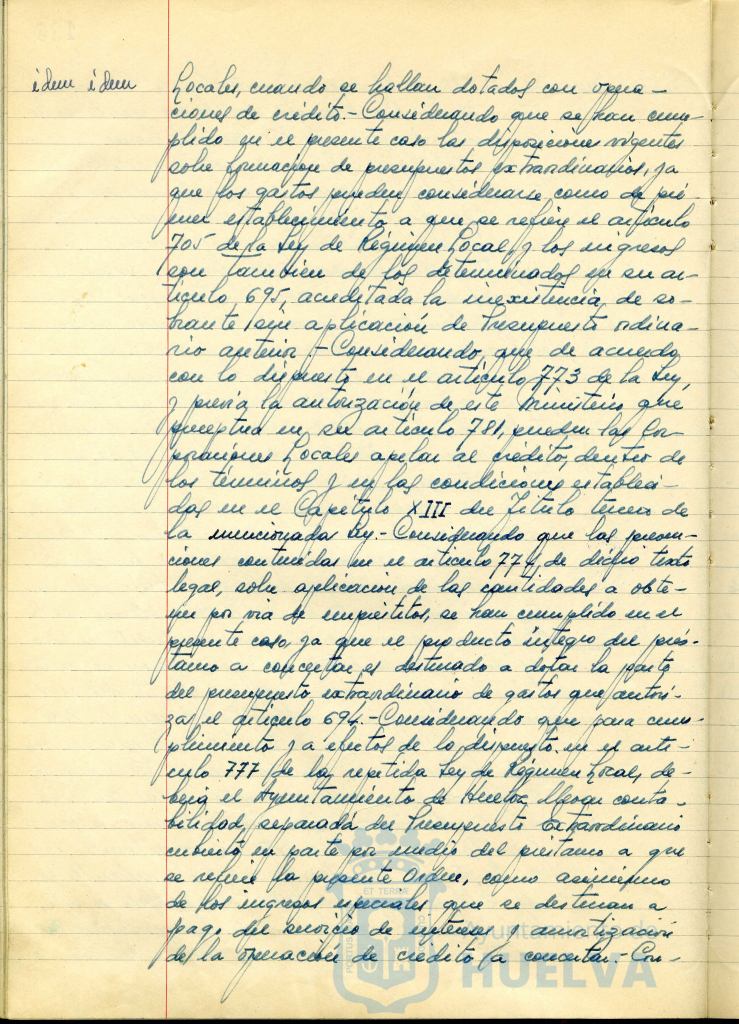 ídem ídem
Locales, cuando se hallan dotados con opera-
ciones de crédito.- Considerando que se han cum-
plido en el presente caso las disposiciones vigentes
sobre formación de presupuestos extraordinarios, ya
que los gastos pueden considerarse como de pri-
mer establecimiento a que se refiere el artículo
705 de la Ley de Régimen Local, y los ingresos
son también de los determinados en su ar-
tículo 695, acreditada la inexistencia de so-
brante sin aplicación de Presupuesto ordina-
rio anterior.- Considerando, que de acuerdo
con lo dispuesto en el artículo 773 de la Ley,
y previa la autorización de este Ministerio que
preceptua en su artículo 781, pueden las Cor-
poraciones Locales apelar al crédito, dentro de
los términos y en las condiciones estableci-
das en el Capítulo XIII del Título tercero de
la mencionada Ley.- Considerando que las preven-
ciones contenidas en el artículo 774 de dicho texto
legal, sobre aplicación de las cantidades a obte-
ner por via de empréstitos, se han cumplido en el
presente caso, ya que el producto íntegro del prés-
tamo a concertar es destinado a dotar la parte
del presupuesto extraordinario de gastos que autori-
za el artículo 694.- Considerando que para cum-
plimiento y a efectos de lo dispuesto en el artí-
culo 777 de la repetida Ley de Régimen Local, de-
berá el Ayuntamiento de Huelva llevar conta-
bilidad separada del Presupuesto Extraordinario
cubierto en parte por medio del préstamo a que
se refiere la presente Orden, como asimismo
de los ingresos especiales que se destinan a
pago del servicio de intereses y amortización
de la operación de crédito a concertar.- Con-
Ayuntamiento de
HUELVA